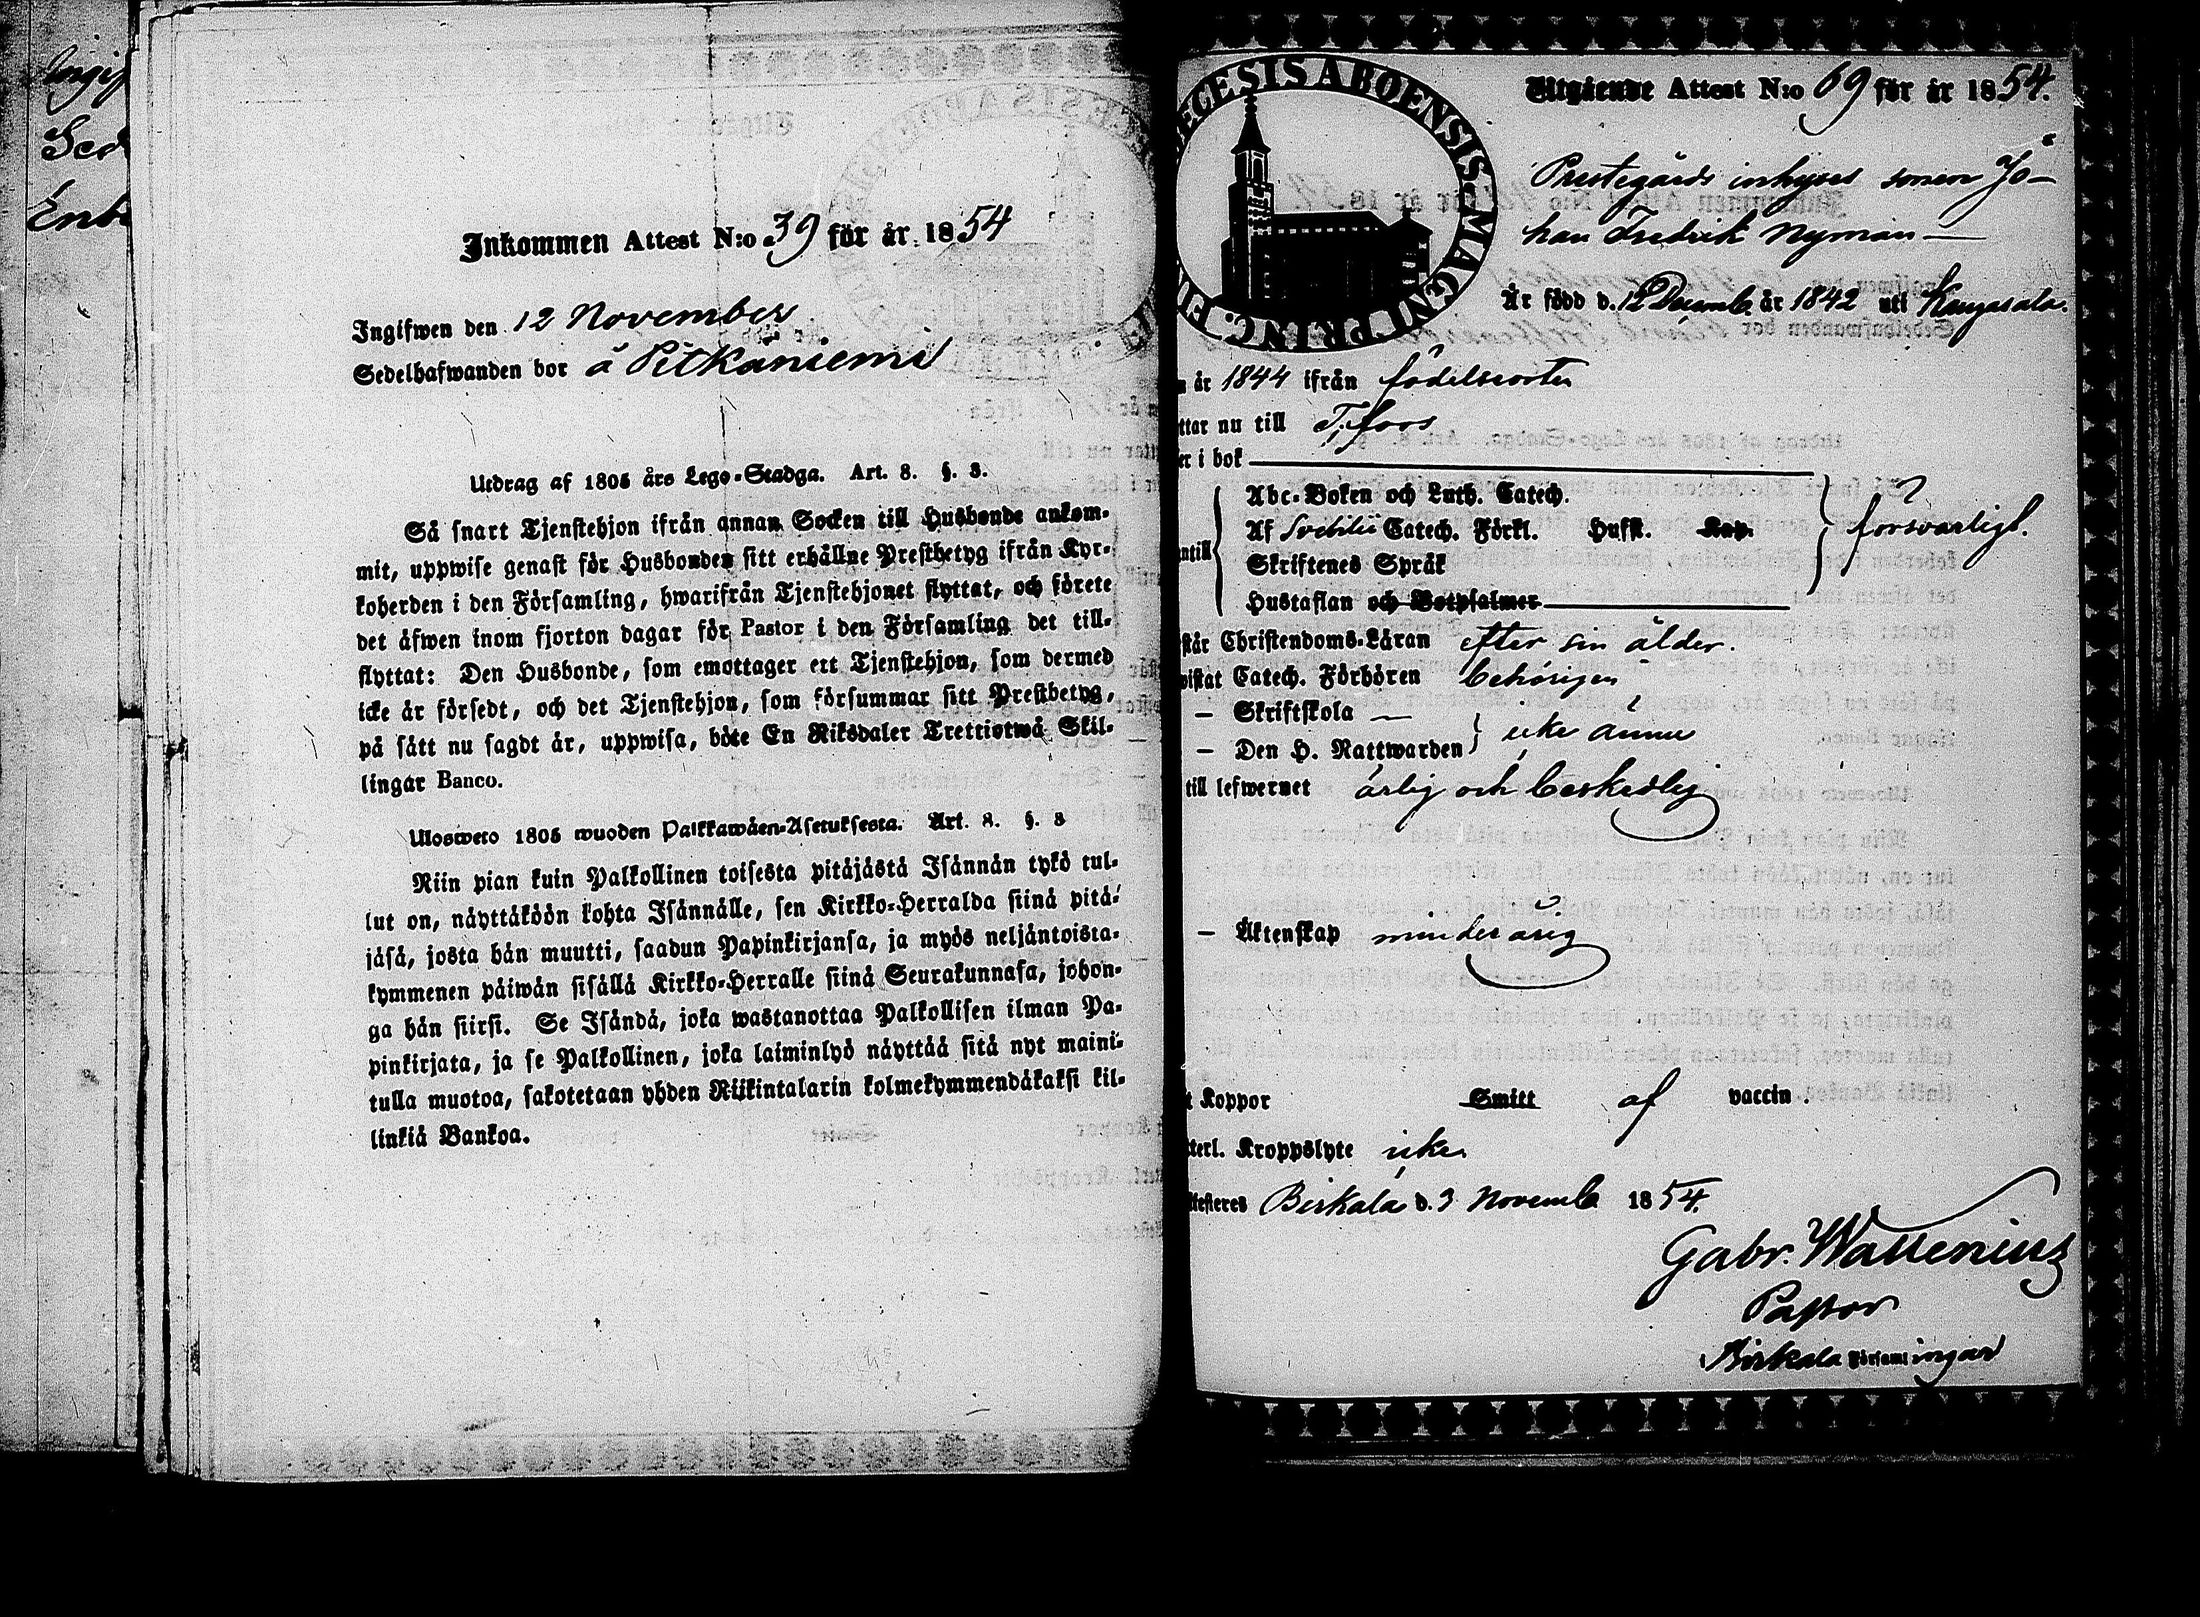 Inkommen Attest N:o 39 för år 1854
Ingifwen den 12 November
Sedelhafwanden bor å Pitkäniemi
Utdrag af 1805 års Lego-Stadga. Art. 8. §. 3.
Så snart Tjenstehjon ifrån annan Socken till Husbonde ankom-
mit, uppwise genast för Husbonden sitt erhållne Prestbetyg ifrån Kyr-
koherden i den Församling, hwarifrån Tjenstehjonet flyttat, och förete
det äfwen inom fjorton dagar för Pastor i den Församling det till-
flyttat: Den Husbonde, som emottager ett Tjenstehjon, som dermed
icke är försedt, och det Tjenstehjon, som försummar sitt Prestbetyg,
på sätt nu sagdt är, uppwisa, böte En Riksdaler Trettiotwå Skil-
lingar Banco.
Ulosweto 1805 wuoden Palkkawäen-Asetuksesta. Art. 8. §. 3
Niin pian kuin Palkollinen toisesta pitäjästä Isännän tykö tul-
lut on, näyttäköön kohta Isännälle, sen Kirkko-Herralda siinä pitä-
jäsä, josta hän muutti, saadun Papinkirjansa, ja myös neljäntoista-
kymmenen päiwän sisällä Kirkko-Herralle siinä Seurakunnasa, johon-
ga hän siirsi. Se Isändä, joka wastanottaa Palkollisen ilman Pa-
pinkirjata, ja se Palkollinen, joka laiminlyö näyttää sitä nyt maini-
tulla muotoa, sakotetaan yhden Riikintalarin kolmekymmendäkaksi kil-
linkiä Bankoa.
ECESIS ABOENSIS MAGNI PRINC. FIN
Utgående Attest N:o 69 för år 1854.
Prestegårds inhyses sonen Jo-
han Fredrik Nyman
Är född d. 12 Decemb. år 1842 uti Kangasala.
år 1844 ifrån födelseorten
ttar nu till T:fors
er i bok
Abc-Boken och Luth. Catech.
Af Svebilii Catech. Förkl. Husst. Kap.
försvarligt.
ntill
Skriftenes Språk
Hustaflan och Botpsalmer
står Christendoms-Läran efter sin ålder.
vistat Catech. Förhören behörigen
— Skriftskola —
— Den H. Nattwarden icke ännu
till lefwernet ärlig och beskedlig
— Äktenskap minderårig
t Koppor Smitt af vaccin.
terl. Kroppslyte icke.
ttesteres Birkala d. 3 Novemb. 1854.
Gabr. Wallenius
Pastor
i Birkala Församlingar